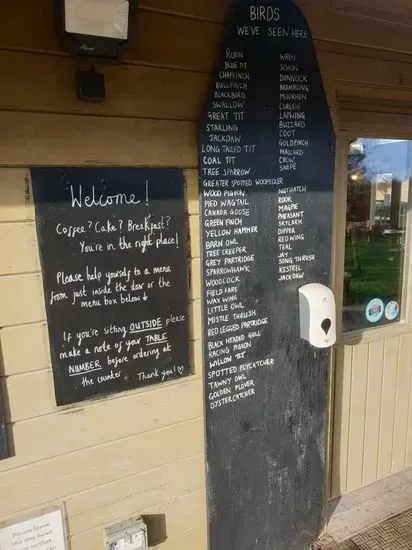 BIRDS
WE'VE SEEN HERE
ROBIN
BLUE TIT
CHAFFINCH
BULLFINCH
BLACKBIRD
SWALLOW
GREAT TIT
STARLING
JACKDAW
LONG TAILED TIT
COAL TIT
TREE SPARROW
GREATER SPOTTED WOODPECKER
WOOD PIGEON
PIED WAGTAIL
CANADA GOOSE
GREEN FINCH
YELLOW HAMMER
BARN OWL
TREE CREEPER
GREY PARTRIDGE
SPARROWHAWK
WOODCOCK
FIELD FARE
WAX WING
LITTLE OWL
MISTLE THRUSH
RED LEGGED PARTRIDGE
BLACK HEADED GULL
RACING PIGEON
WILLOW TIT
SPOTTED FLYCATCHER
TAWNY OWL
GOLDEN PLOVER
OYSTERCATCHER
WREN
SISKIN
DUNNOCK
BRAMBLING
MOORHEN
CURLEW
LAPWING
BUZZARD
COOT
GOLDFINCH
MALLARD
CROW
SNIPE
NUTHATCH
ROOK
MAGPIE
PHEASANT
SKYLARK
DIPPER
REDWING
TEAL
JAY
SONG THRUSH
KESTREL
JACKDAW
Welcome!
Coffee? Cake? Breakfast?
You're in the right place!
Please help yourself to a menu
from just inside the door or the
menu box below ↓
If you're sitting OUTSIDE please
make a note of your TABLE
NUMBER before ordering at
the counter - Thank you! ♡
Please leave